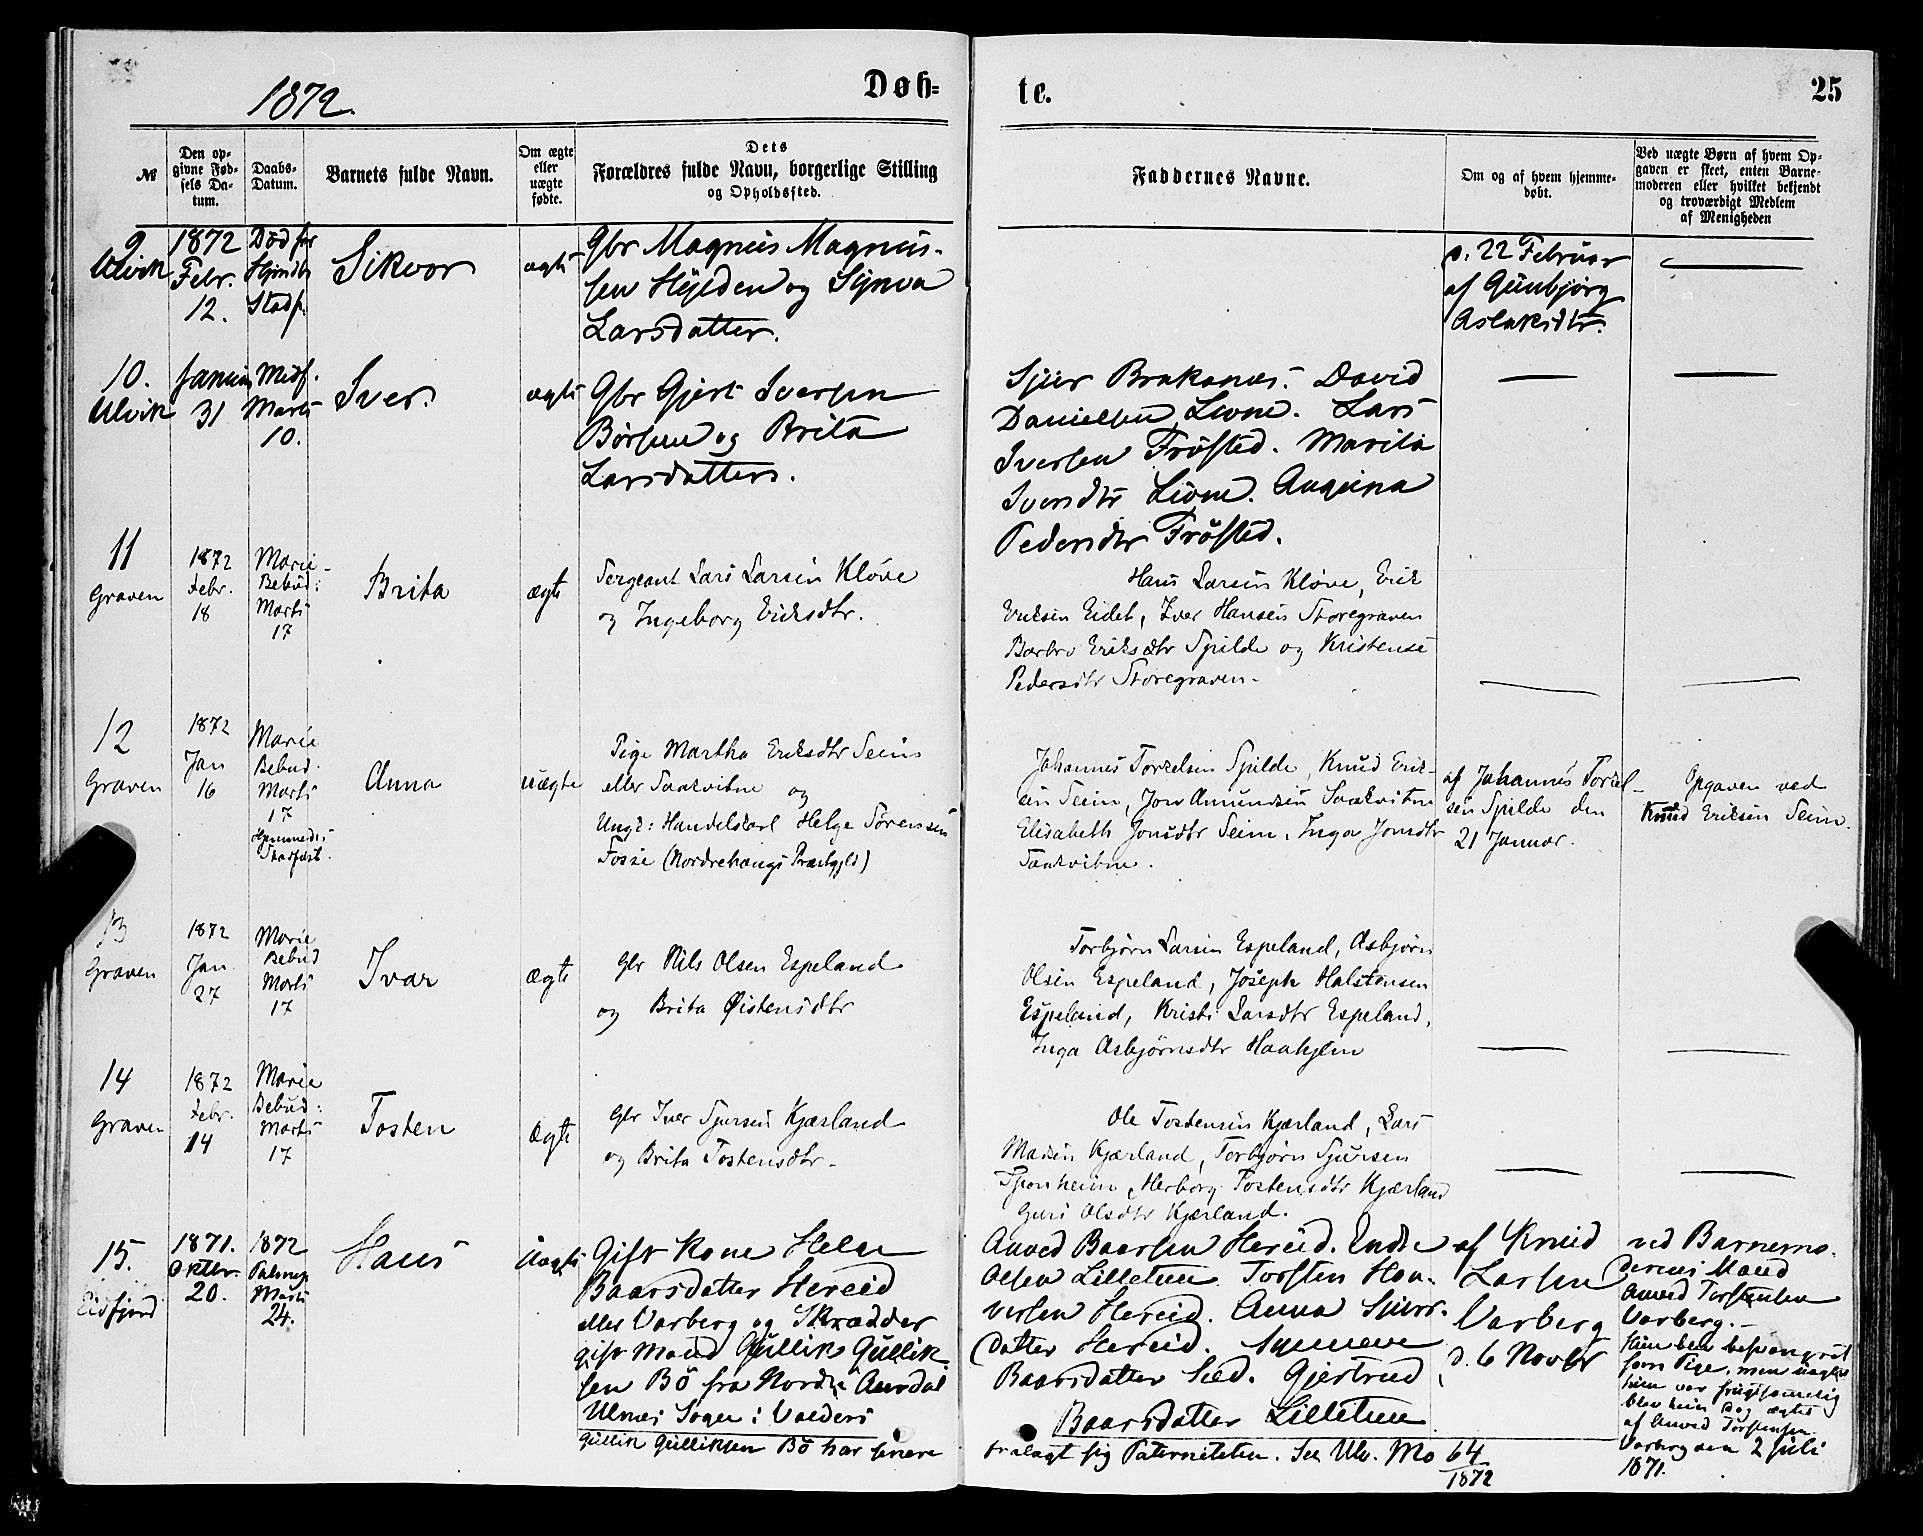 1872.
Døb=
te.
25
№
Den op-
givne Fød-
sels Da-
tum.
Daabs-
Datum.
Barnets fulde Navn.
Om ægte
eller
uægte
fødte.
Dets
Forældres fulde Navn, borgerlige Stilling
og Opholdssted.
Faddernes Navne.
Om og af hvem hjemme-
døbt.
Ved uægte Børn af hvem Op-
gaven er skeet, enten Barne-
moderen eller hvilket bekjendt
og troværdigt Medlem
af Menigheden
9
Ulvik
1872
Febr.
12.
Død før
Stadf.
Sikvor
ægte
Gbr Magnus Magnus-
sen Hylden og Synva
Larsdatter.
d. 22 Februar
af Gunbjørg
Aslaksdtr.
10.
Ulvik
Januar
31
Midf.
Marts
10.
Iver.
ægte
Gbr Gjert Iversen
Børsen og Brita
Larsdatters.
Sjur Brakanes. David
Danielsen Lione. Lars
Iversen Frøsted. Marita
Iversdtr Lione. Angina
Pedersdtr Frøsted.
11
Graven
1872
Febr.
18
Marie-
Bebud:
Marts
17
Brita
ægte
Sergeant Lars Larsen Kløve
og Ingeborg Eriksdtr.
Hans Larsen Kløve, Erik
Eriksen Eidet, Iver Hansen Storegraven
Barbro Eriksdtr Spilde og Kristense
Pedersdtr Storegraven.
12
Graven
1872
Jan
16
Marie
Bebud.
Marts
17
Hjemmedøbs
Stadfæst.
Anna
uægte
Pige Martha Eriksdtr Seim
eller Saakvitne og
Ungk: Handelskarl Helge Sørensen
Fosse (Nordrehougs Præstgjeld)
Johannes Torkelsen Spilde, Knud Erik-
sen Seim, Jon Amundsen Saakvitne
Elisabeth Jonsdtr Seim, Inga Jonsdtr
Saakvitne.
af Johannes Torkel-
sen Spilde den
21 Januar.
Opgaven ved
Knud Eriksen Seim.
13
Graven
1872
Jan.
27
Marie
Bebud
Marts
17
Ivar
ægte
Gbr Nils Olsen Espeland
og Brita Østensdtr
Torbjørn Larsen Espeland, Asbjørn
Olsen Espeland, Joseph Halstensen
Espeland, Kristi Larsdtr Espeland,
Inga Asbjørnsdtr Haahjem
14
Graven
1872
Febr.
14
Marie
Bebud:
Marts
17
Tosten
Ægte
Gbr Iver Sjursen Kjærland
og Brita Tostensdtr.
Ole Tostensen Kjærland, Lars
Madsen Kjærland, Torbjørn Sjursen
Sponheim, Herborg Tostensdtr Kjærland
Guri Olsdtr Kjærland.
15.
Eidfjord
1871.
Oktbr.
20.
1872
Palmes
Marts
24.
Hans
Uægte
Gift Kone Helga
Baarsdatter Hereid
eller Varberg og Skrædder
gift Mand Gullik Gullik-
sen Bø fra Nordre Aurdal
Ulnæs Sogn i Valders
Anved Baarsen Hereid. Endre
Olsen Lilletun. Torsten Hal-
versen Hereid. Anna Sjurs-
datter Hereid. Synneve
Baarsdatter Sæd. Gjertrud
Baarsdatter Lilletun
af Knud
Larsen
Varberg
d. 6 Novbr
ved Barnemo-
derens Mand
Anved Torstensen
Varberg.—
Hun blev besvangret
som Pige, men uagtet
hun var frugtsommelig
blev hun dog ægtet
af Anved Torstensen
Varberg den 2 juli
1871.
Gullik Gulliksen Bø har senere
fralagt sig Paterniteten. See Ulv. No 64
1872